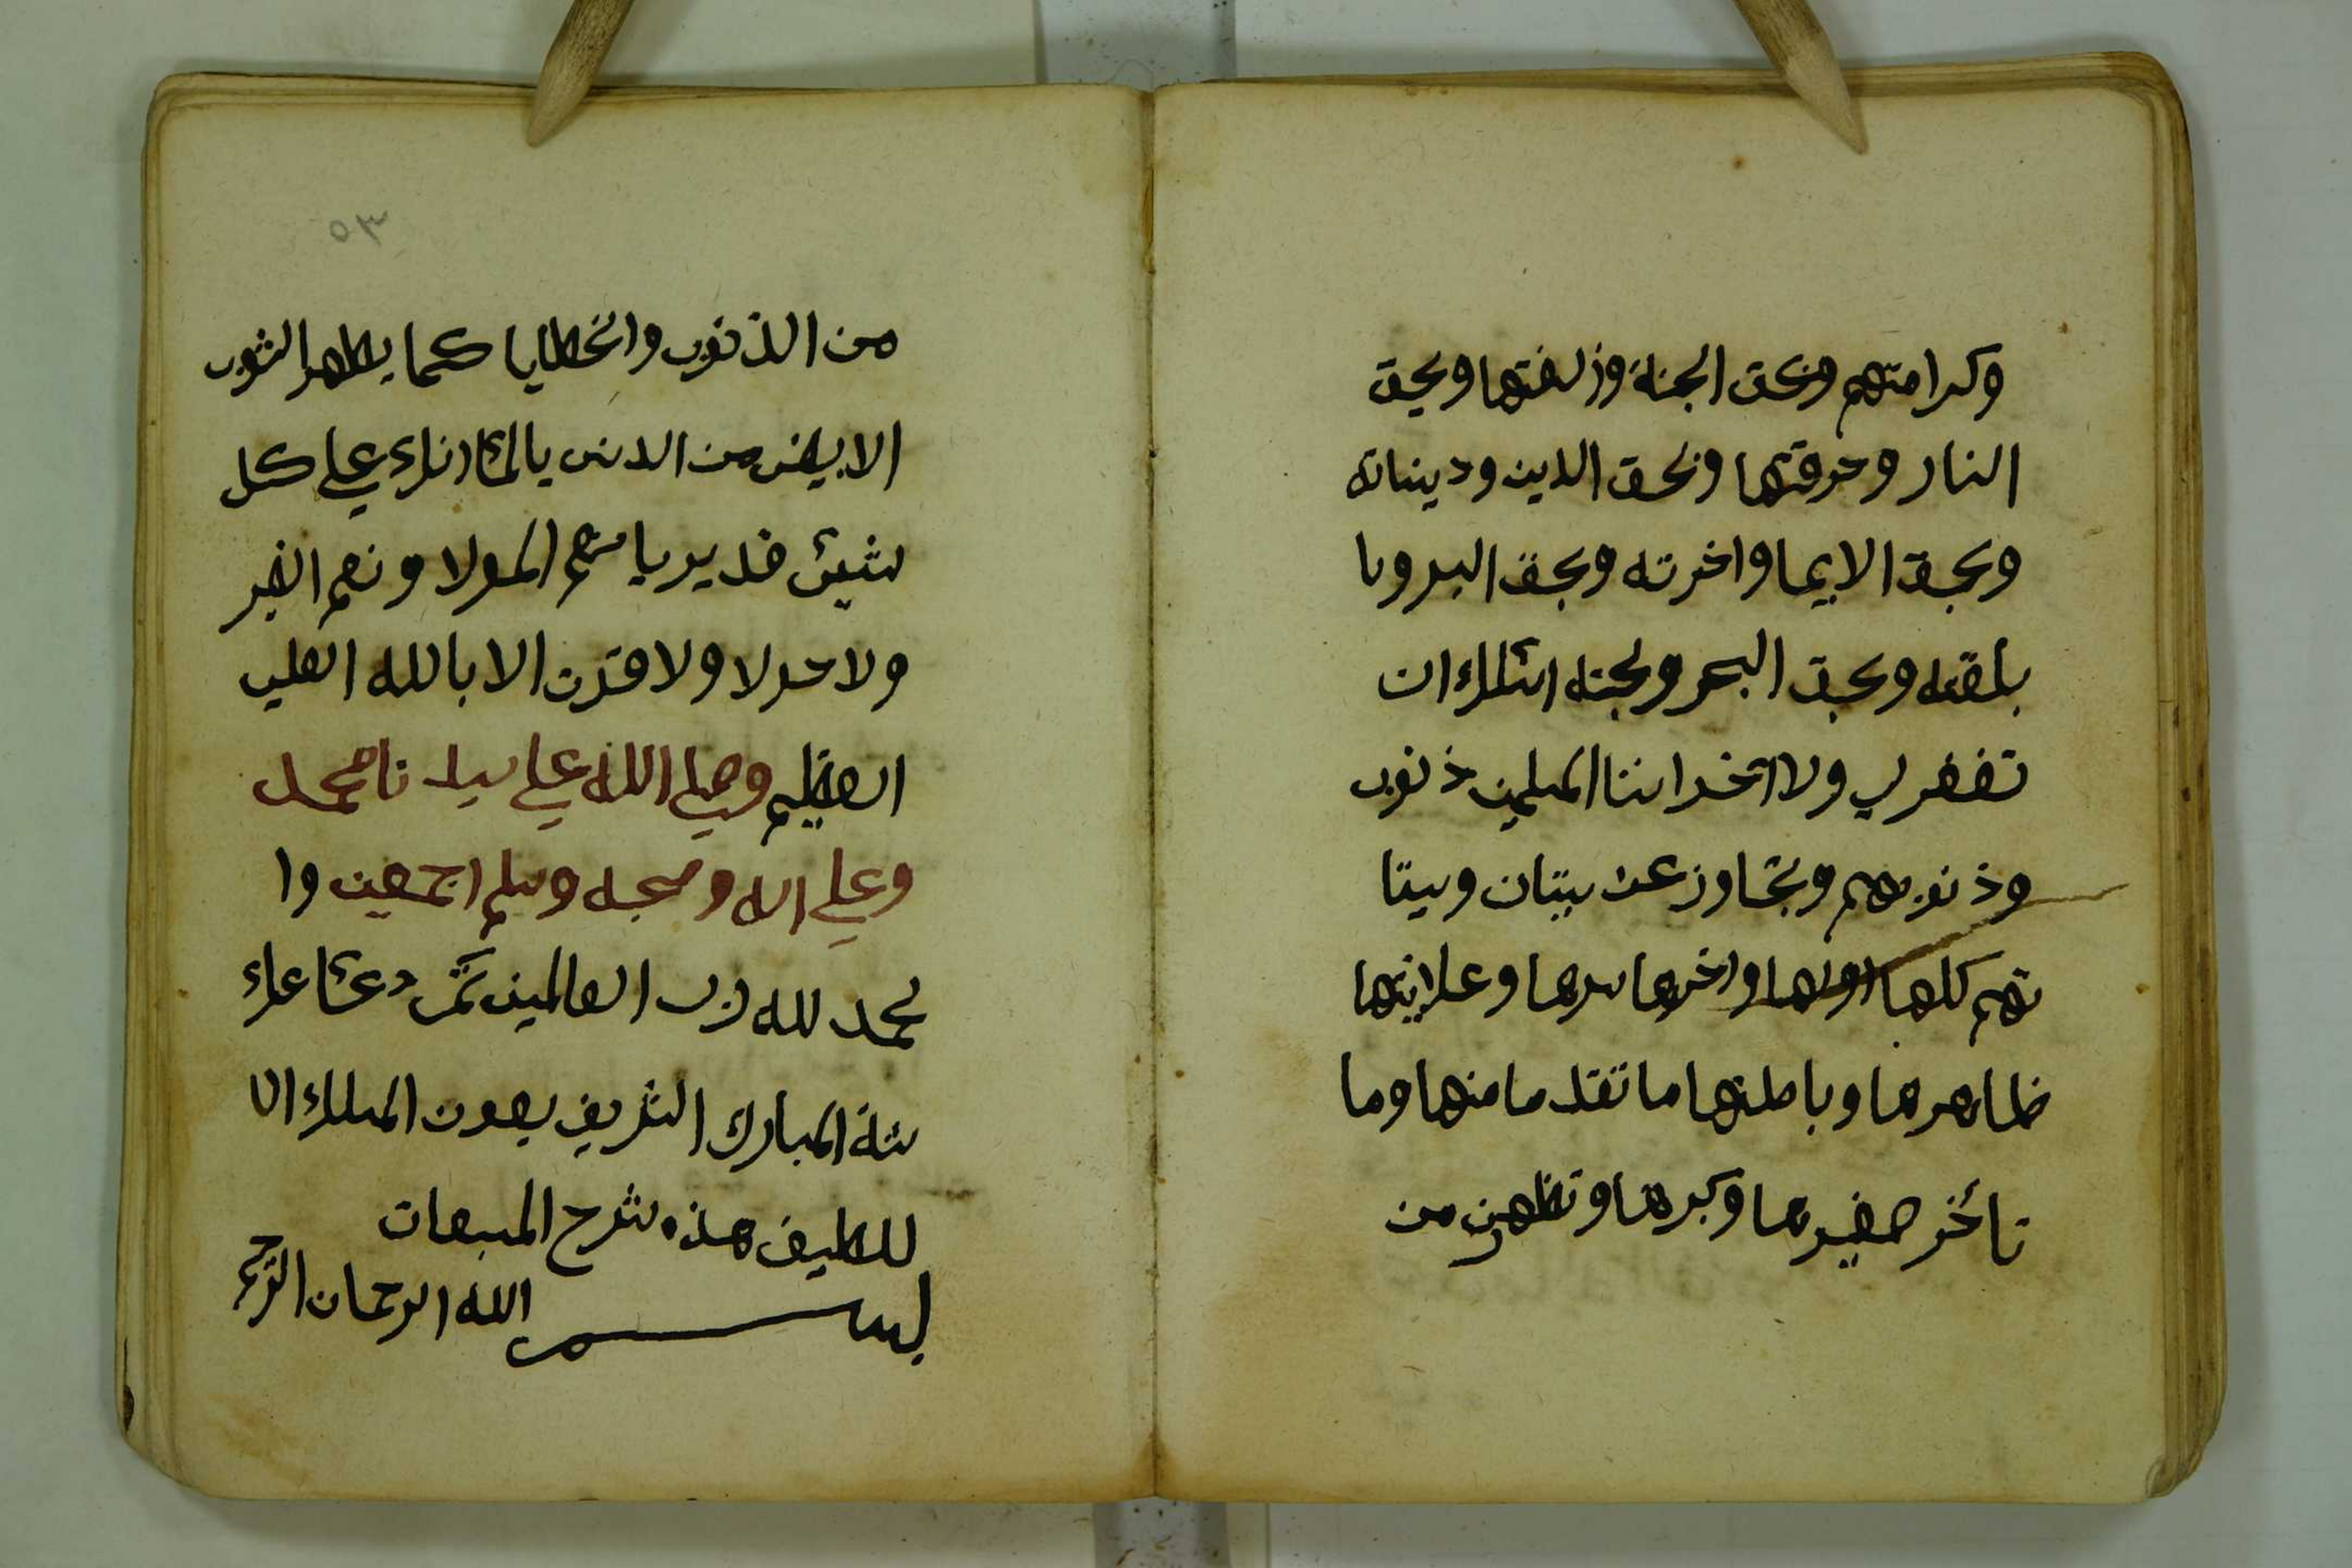 وكرامتهم وبحق الجنة وزلفتها وبحق
النار وحرقتها وبحق الدين وديناته
وبحق الايما واخرته وبحق البر ويا
بلقته وبحق البحر ولجته اسئلك ان
تغفر لي ولااخداننا المسلمين ذنوب
وذنوبهم وتجاوز عن سيتان وسيتا
تهم كلها اولها واخرها سرها وعلانيتها
ظاهرها وباطنها ما تقدما منها وما
تائخر صغيرها وكبرها وتطهرن من
٥٣
من الذنوب والخطايا كما يطهر الثوب
الابيض من الدنس بالمائ انك علي كل
شيئ قدير يا نعم المولا ونعم النصير
ولا حولا ولا قوت الا بالله العلي
العظيم وصلي الله علي سيدنا محمد
وعلي اله وصحبه وسلم اجمعين وا
لحمد لله رب العالمين تمت دعائ عا
شة المبارك الشريف بعون الملك ال
للطيف هذه شرح المسبعات
بسم الله الرحمان الرحيم